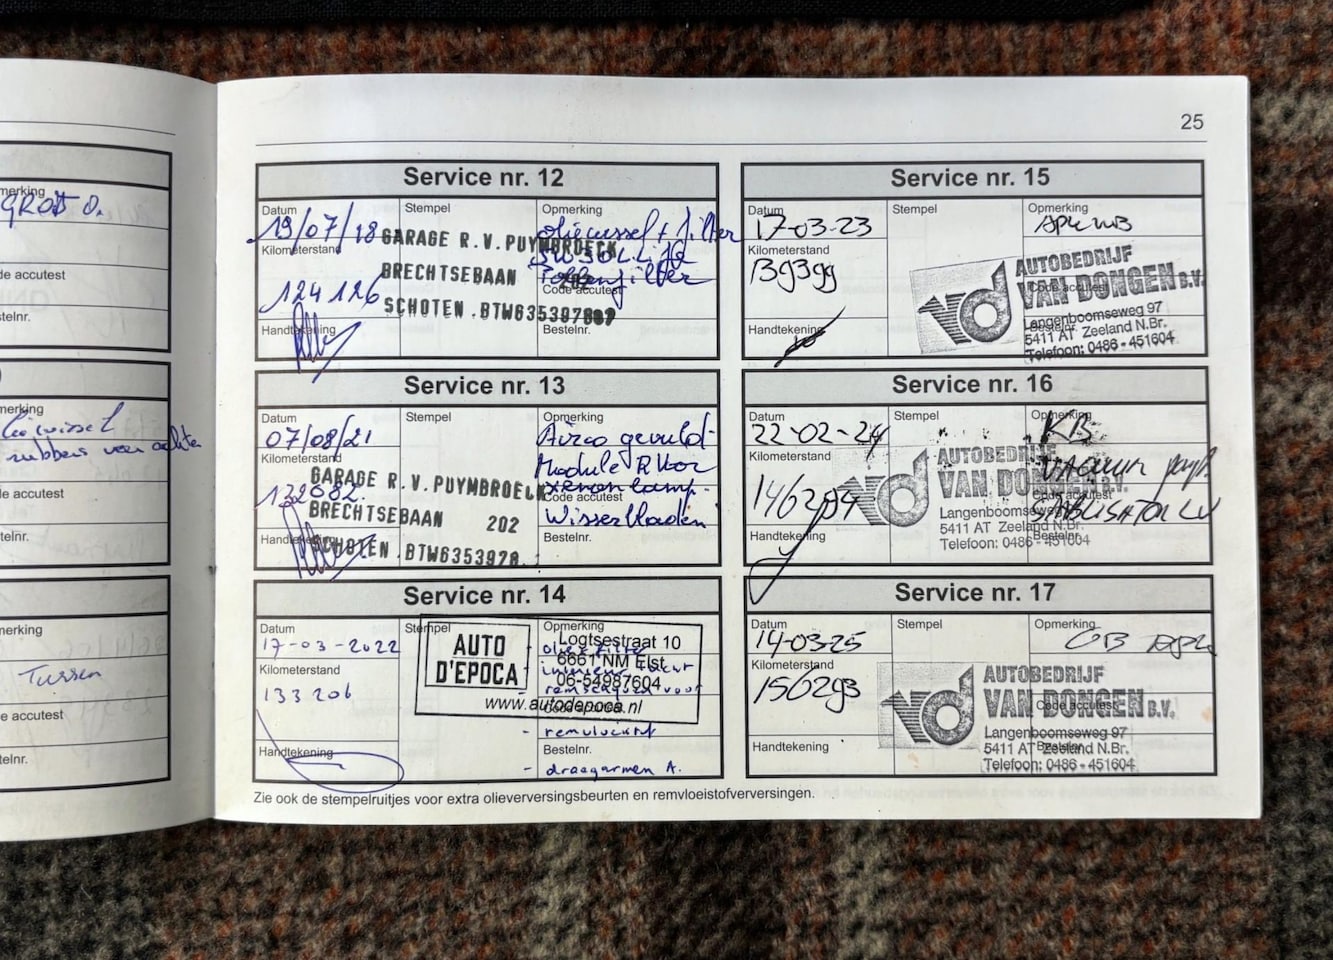 25
merking
GROT O.
de accutest
telnr.
merking
rubbers van achte
de accutest
elnr.
merking
Tussen
e accutest
telnr.
Service nr. 12
Datum
19/07/18
Kilometerstand
124 126
Handtekening
Stempel
GARAGE R.V.PUYMBROECK
BRECHTSEBAAN 202
SCHOTEN .BTW635397807
Opmerking
oliewissel + filter
5W30 L.Life
Pollenfilter
Code accutest
Bestelnr.
Service nr. 13
Datum
07/08/21
Kilometerstand
132082.
Handtekening
Stempel
GARAGE R.V.PUYMBROECK
BRECHTSEBAAN 202
SCHOTEN .BTW6353978.
Opmerking
Airco gevuld
Module R Voor
xenon lamp.
Code accutest
Wisserbladen
Bestelnr.
Service nr. 14
Datum
17-03-2022
Kilometerstand
133 206
Handtekening
Stempel
AUTO
D'EPOCA
Logtsestraat 10
6661 NM Elst
06-54987604
www.autodepoca.nl
Opmerking
olie + filter
interieur
remschijven voor
Code accutest
- remvloeistof
Bestelnr.
- draagarmen A.
Service nr. 15
Datum
17-03-23
Kilometerstand
139399
Handtekening
Stempel
Opmerking
APK
AUTOBEDRIJF
VAN DONGEN B.V.
Code accutest
Langenboomseweg 97
Bestelnr.
5411 AT Zeeland N.Br.
Telefoon: 0486 - 451604
Service nr. 16
Datum
22-02-24
Kilometerstand
146294
Handtekening
Stempel
Opmerking
KB
AUTOBEDRIJF
VAN DONGEN B.V.
Code accutest
Langenboomseweg 97
5411 AT Zeeland N.Br.
Bestelnr.
Telefoon: 0486 - 451604
Service nr. 17
Datum
14-03-25
Kilometerstand
156293
Handtekening
Stempel
Opmerking
GB APK
AUTOBEDRIJF
VAN DONGEN B.V.
Code accutest
Langenboomseweg 97
5411 AT Zeeland N.Br.
Bestelnr.
Telefoon: 0486 - 451604
Zie ook de stempelruitjes voor extra olieverversingsbeurten en remvloeistofverversingen.